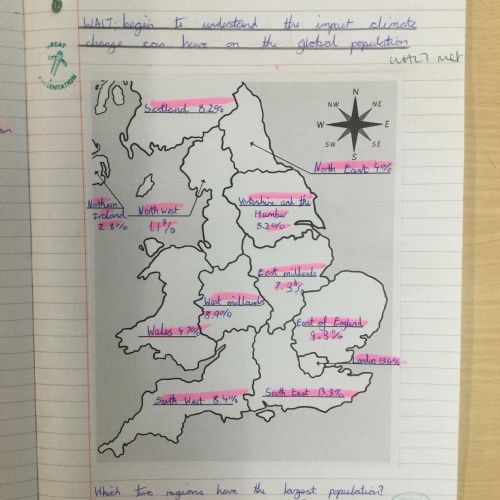 WALT: begin to understand the impact climate
change can have on the global population
WALT met
GREAT
PRESENTATION
Scotland 8.2%
N
NW
NE
W
E
SW
SE
S
North East 4%
Northern
Ireland
2.8%
North west
11%
Yorkshire and the
Humber
8.2%
East midlands
7.3%
West midlands
8.9%
East of England
9.3%
Wales 4.7%
London 13.4%
South West 8.4%
South East 13.8%
Which two regions have the largest population?